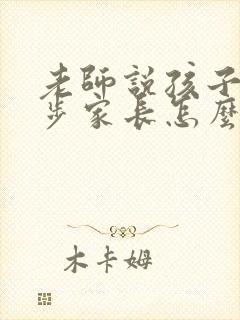 老師說孩子
步家長怎麼
木卡姆